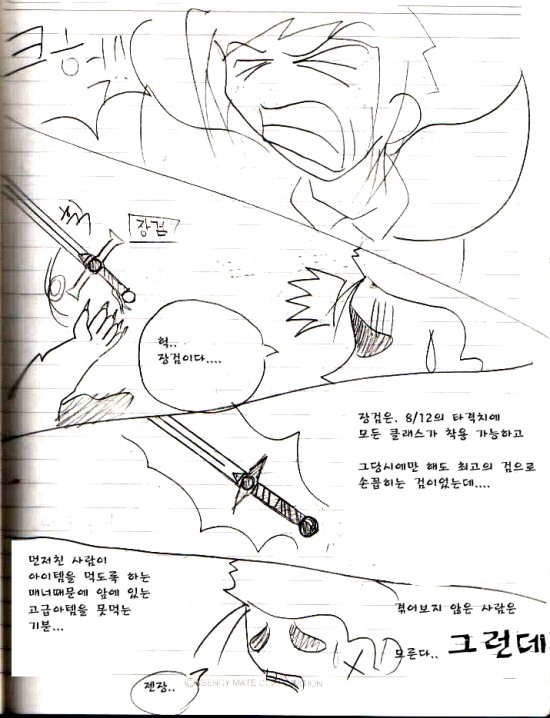 크헐!!
장검
헉..
장검이다....
장검은. 8/12의 타격치에
모든 클래스가 착용 가능하고
그당시에만 해도 최고의 검으로
손꼽히는 검이었는데....
먼저친 사람이
아이템을 먹도록 하는
매너때문에 앞에 있는
고급아템을 못먹는
기분...
겪어보지 않은 사람은
모른다.. 그런데
젠장..